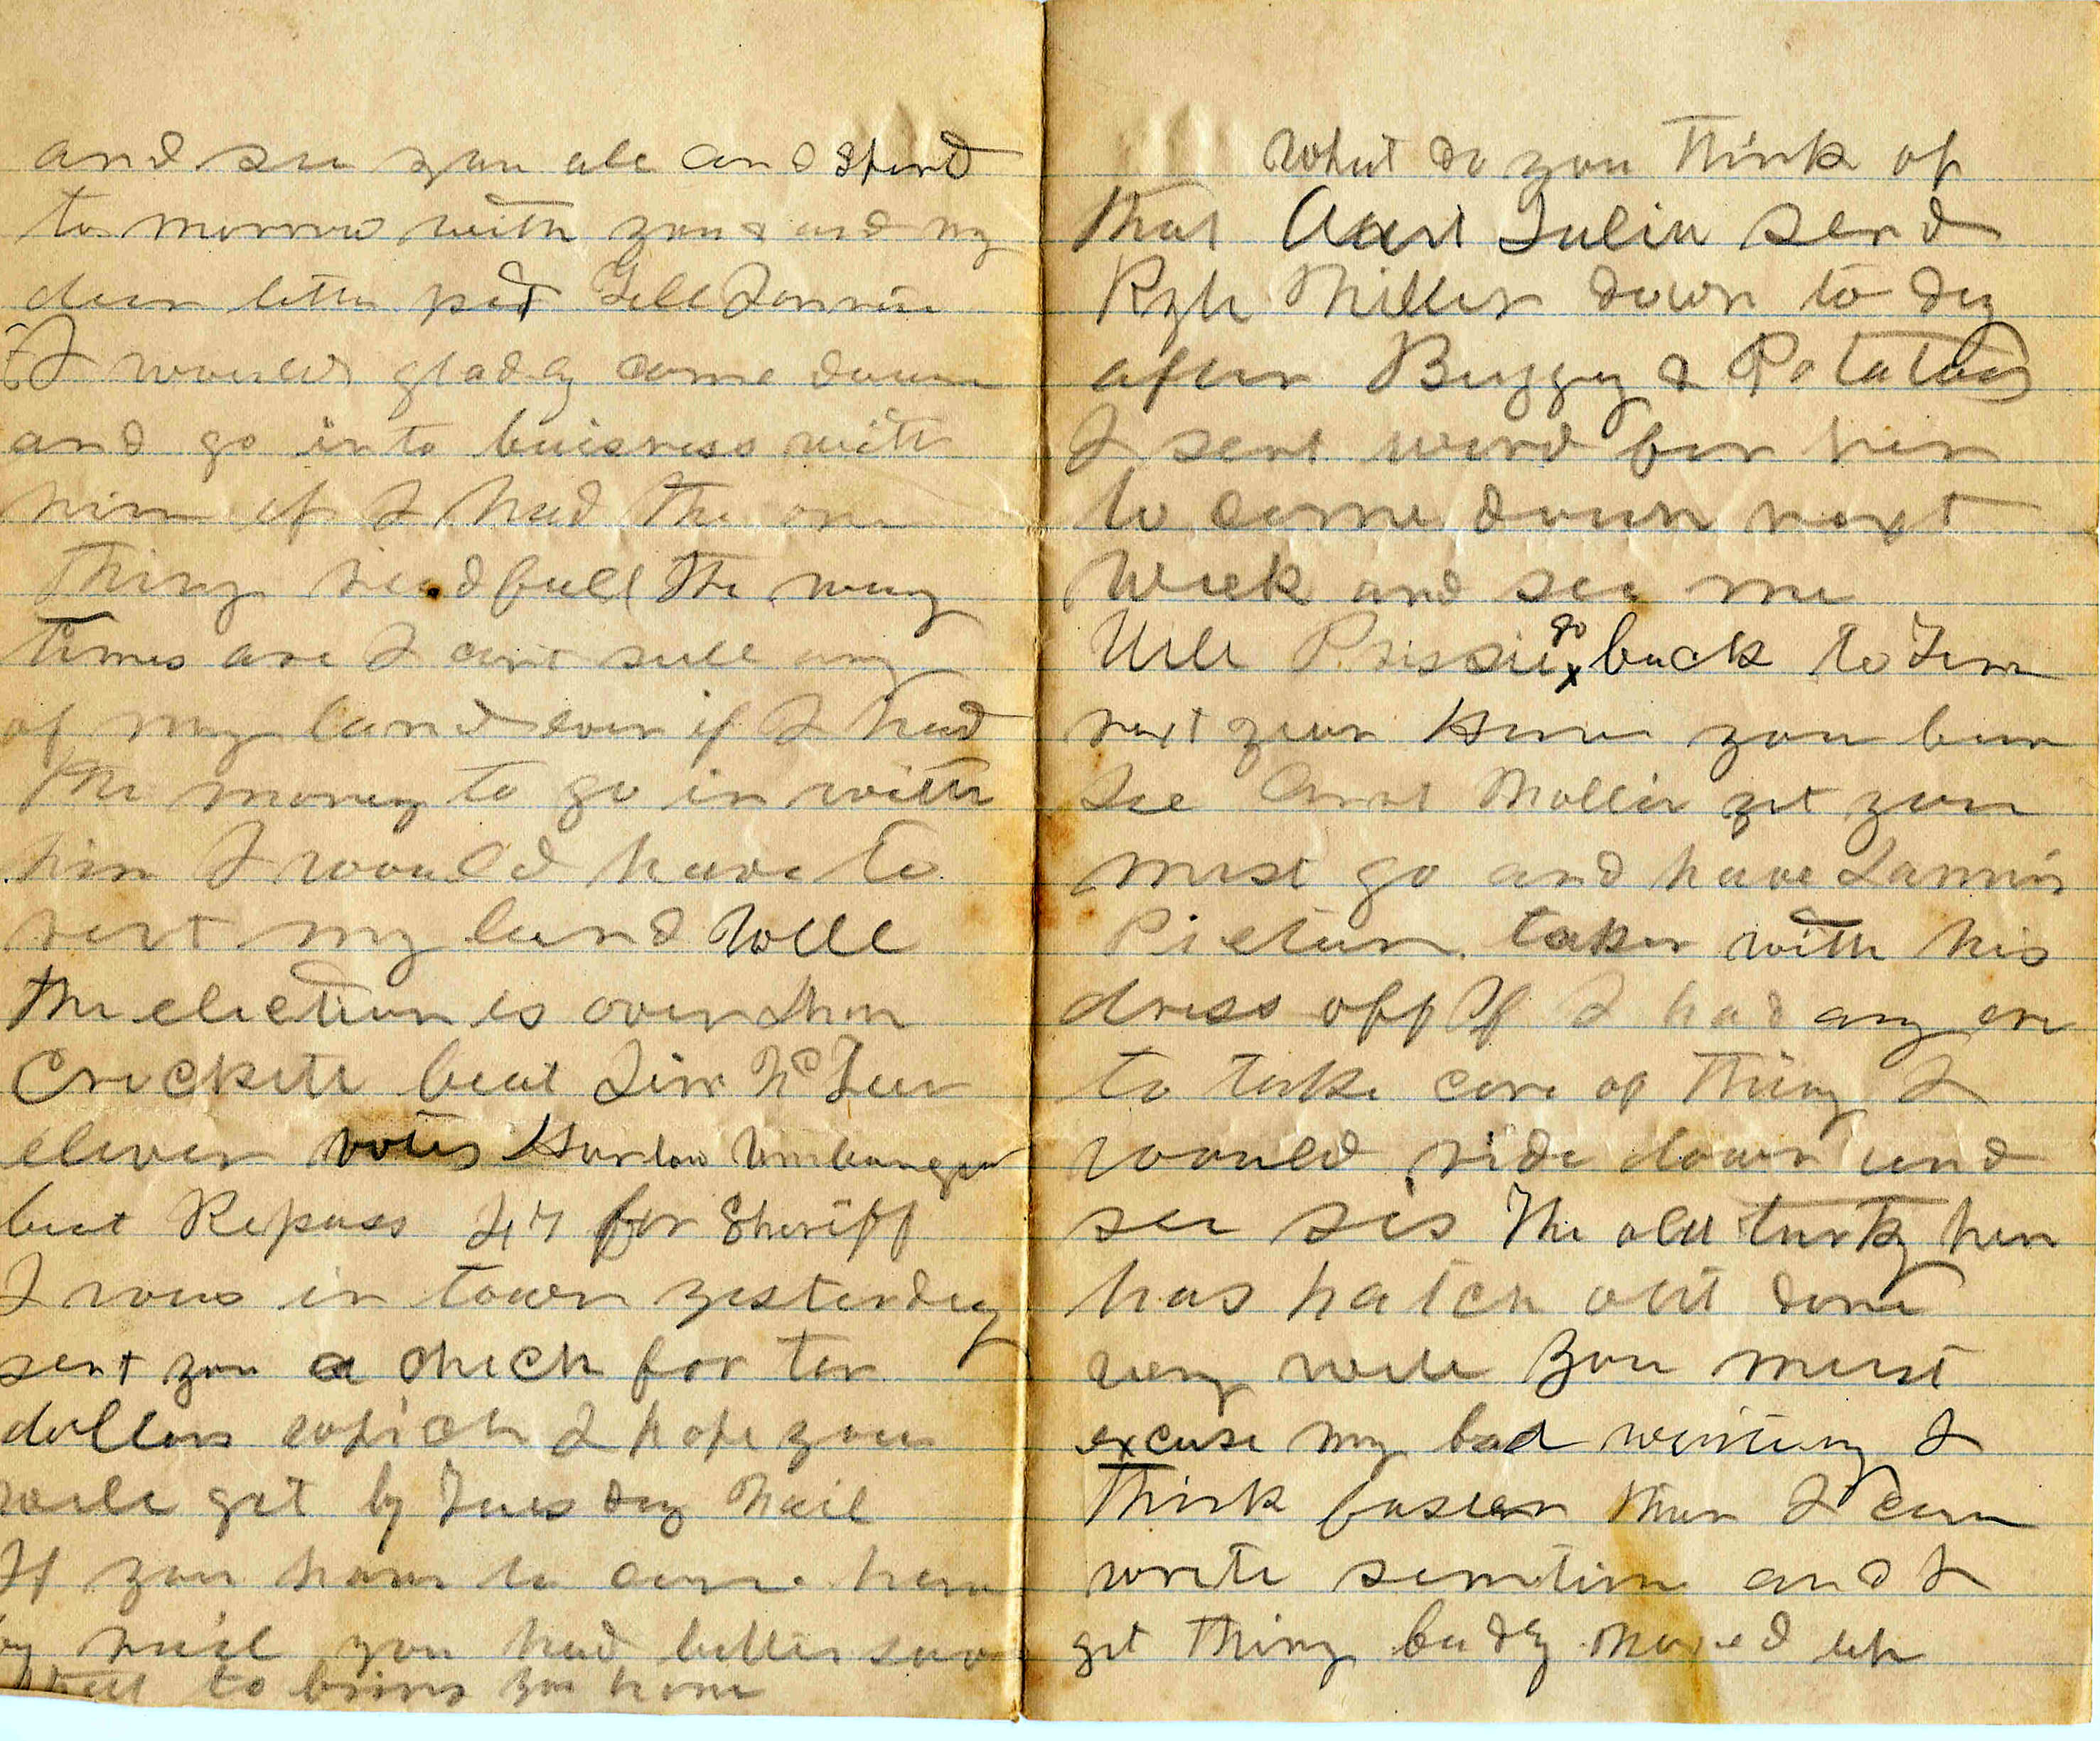 and see you all and spend
to morrow with you & and my
dear little pet Tell Lonnie
I would gladly come down
and go into buisness with
him if I had the one
thing needfull the way
times are I cant sell any
of my land even if I had
the money to go in with
him I would have to
rent my land Well
the election is over Thom
Crockett beat Jim McTeer
eleven votes Harlow Umbarger
beat Repass 47 for Sheriff
I was in town yesterday
sent you a check for ten
dollars which I hope you
will get by Tuesday Mail
If you have to come home
by mail you had better save
that to bring you home
What do you think of
that Aunt Julia send
Miller down to day
after Buggy & Potatoes
I sent word for her
to come down next
Week and see me
Will Prissie go back to Tenn
next year Have you been
See Aunt Mollie yet you
must go and have Lannis
Picture taken with his
dress off If I had any one
to take care of thing I
would ride down and
see sis The old turky hen
has hatch out done
very well You must
excuse my bad writing I
think faster than I can
write semetime and I
get thing badly moxed up